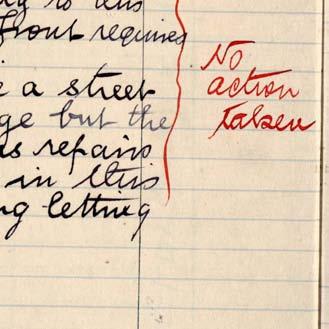 to this
front requires
a street
ge but the
as repairs
in this
ng letting
No
action
taken